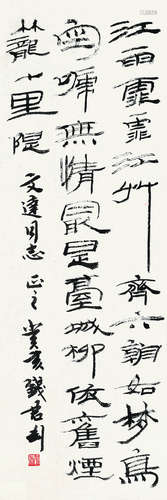 江雨霏霏江艸齊六朝如夢鳥
空啼無情最是臺城柳依舊煙
籠十里隄
文達同志正之癸亥錢君匋